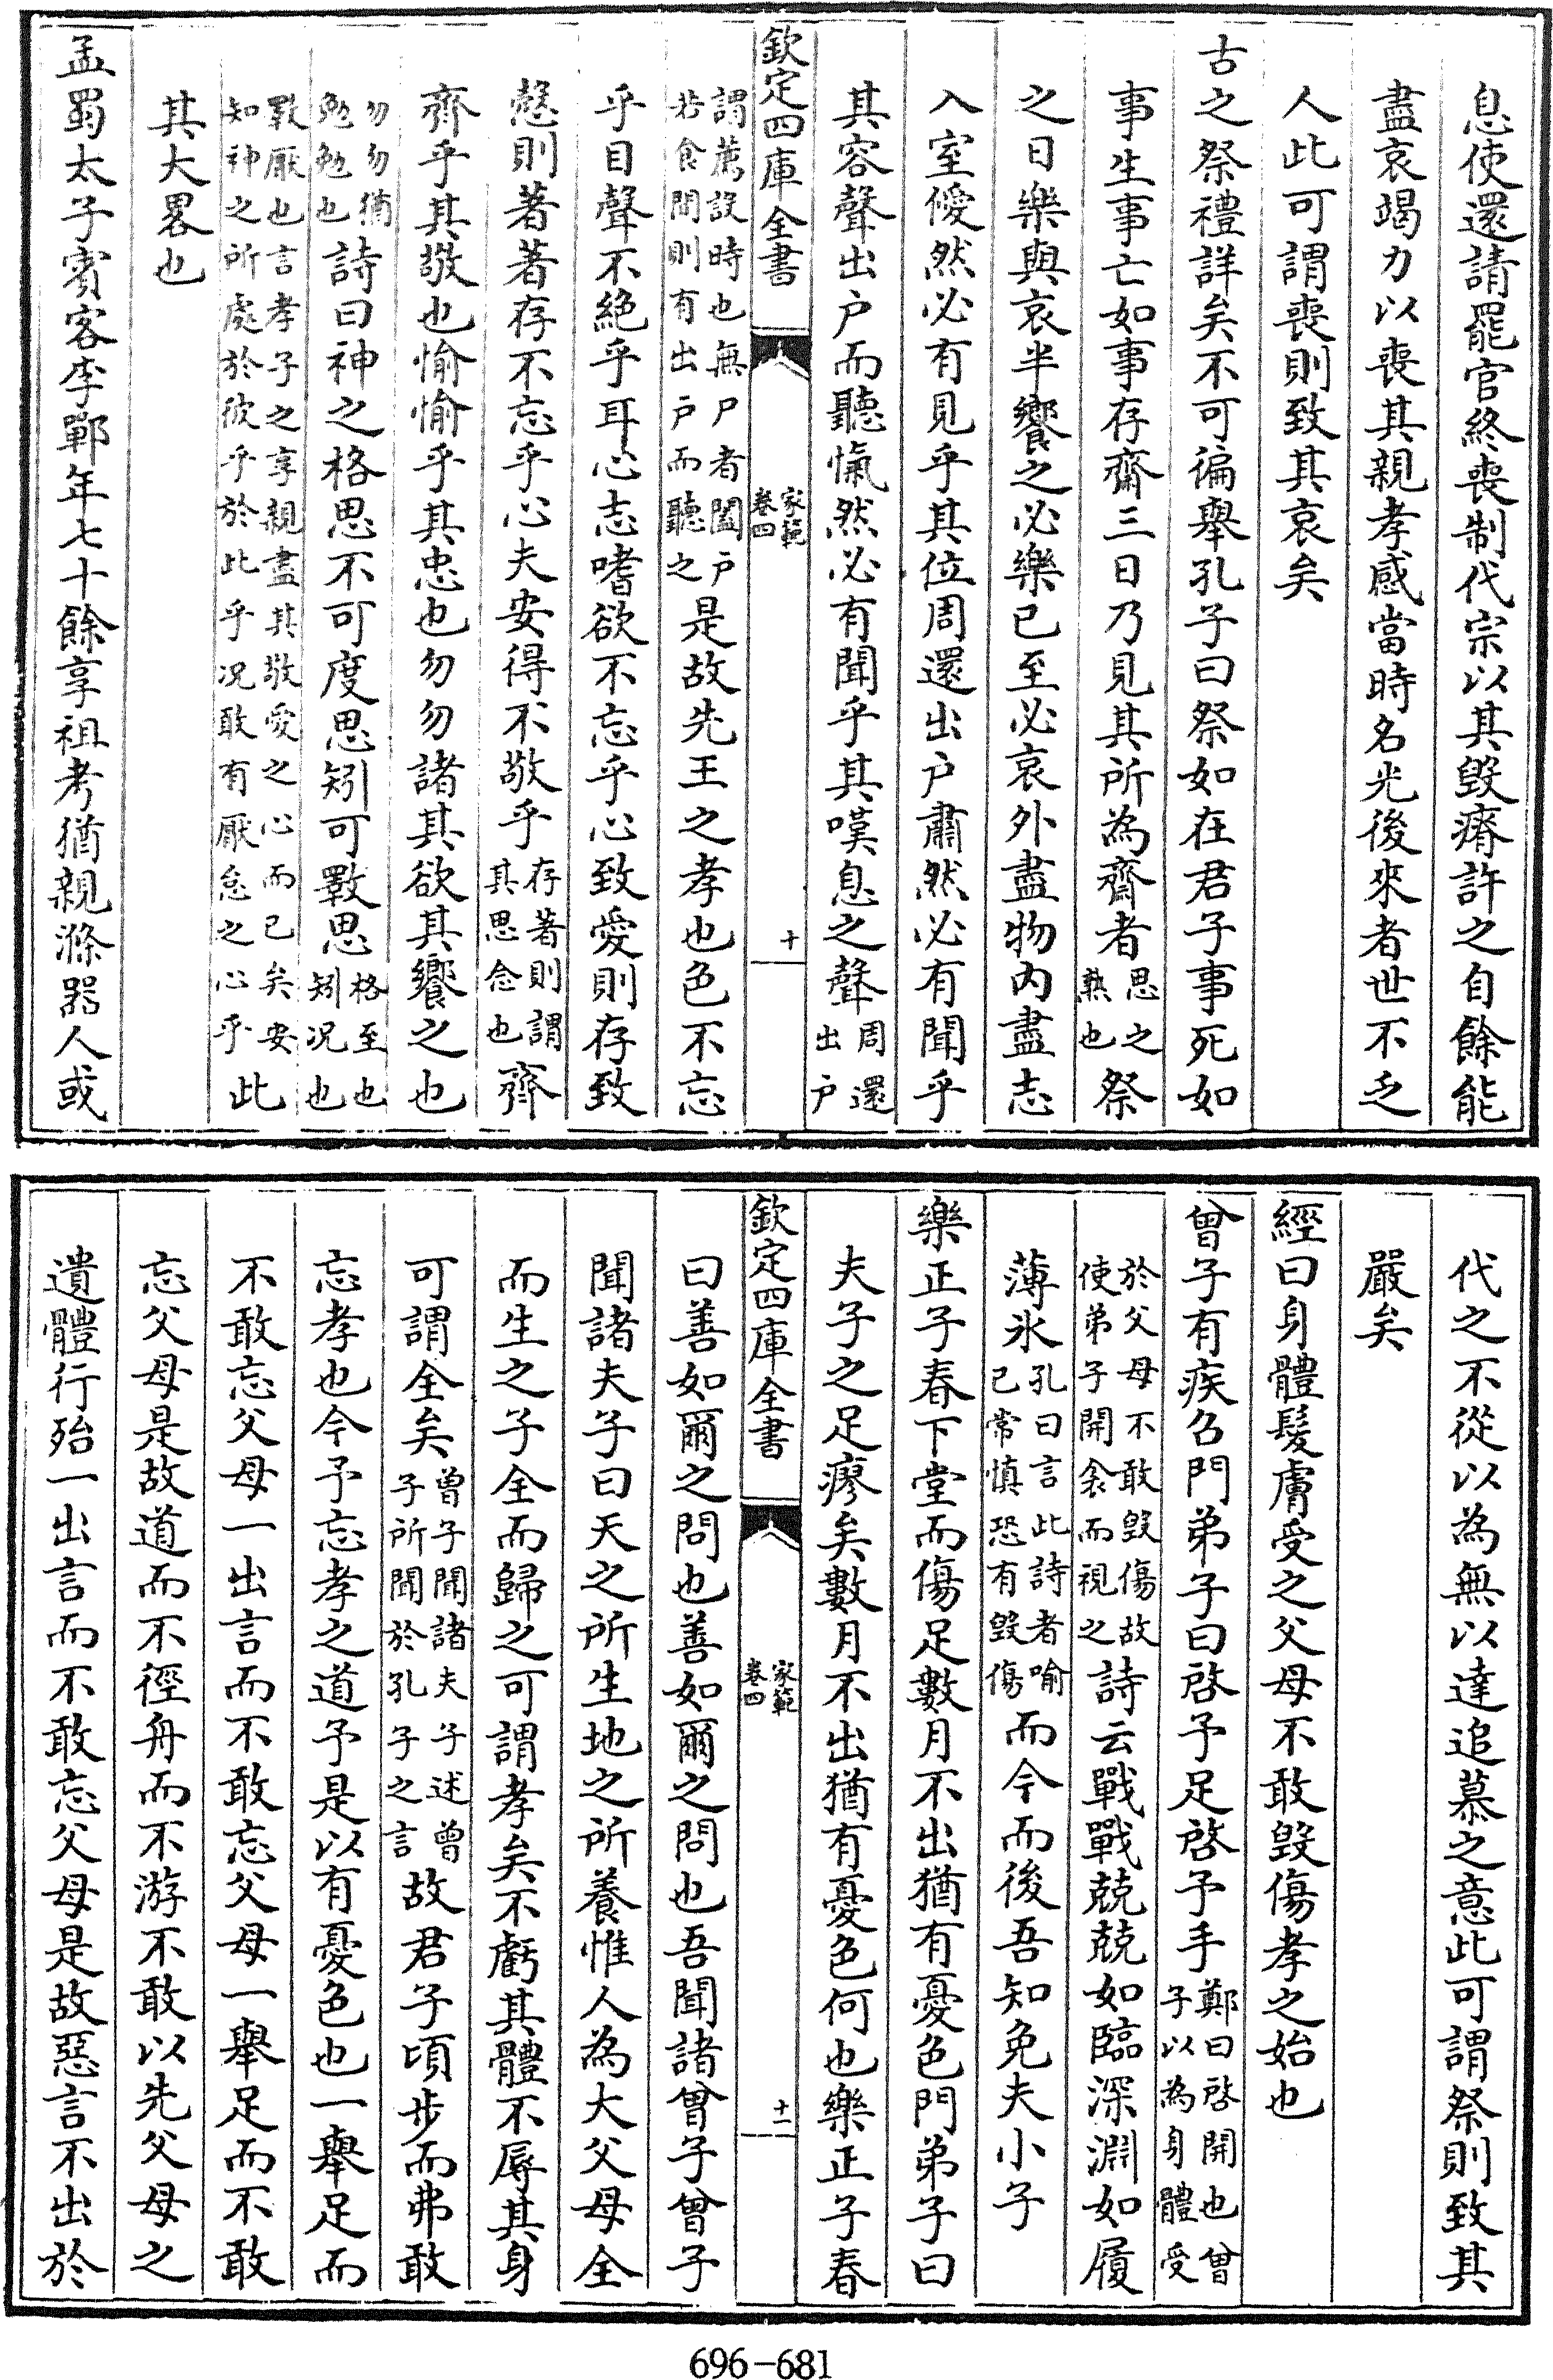 息使還請罷官終喪制代宗以其毀瘠許之自餘能
盡哀竭力以喪其親孝感當時名光後來者世不乏
人此可謂喪則致其哀矣
古之祭禮詳矣不可徧舉孔子曰祭如在君子事死如
事生事亡如事存齋三日乃見其所為齋者思之熟也祭
之日樂與哀半饗之必樂已至必哀外盡物内盡志
入室僾然必有見乎其位周還出户肅然必有聞乎
其容聲出户而聽愾然必有聞乎其嘆息之聲周還出户
欽定四庫全書
家範
卷四
十
謂薦設時也無尸者闔户若食間則有出户而聽之是故先王之孝也色不忘
乎目聲不絶乎耳心志嗜欲不忘乎心致愛則存致
慤則著著存不忘乎心夫安得不敬乎存著則謂其思念也齊
齊乎其敬也愉愉乎其忠也勿勿諸其欲其饗之也
勿勿猶勉勉也詩曰神之格思不可度思矧可斁思格至也矧况也
斁厭也言孝子之享親盡其敬愛之心而已矣安知神之所處於彼乎於此乎况敢有厭怠之心乎此
其大畧也
孟蜀太子賓客李鄲年七十餘享祖考猶親滌器人或
代之不從以為無以達追慕之意此可謂祭則致其
嚴矣
經曰身體髮膚受之父母不敢毀傷孝之始也
曾子有疾召門弟子曰啓予足啓予手鄭曰啓開也曾子以為身體受
於父母不敢毀傷故使弟子開衾而視之詩云戰戰兢兢如臨深淵如履
薄氷孔曰言此詩者喻己常慎恐有毀傷而今而後吾知免夫小子
樂正子春下堂而傷足數月不出猶有憂色門弟子曰
夫子之足瘳矣數月不出猶有憂色何也樂正子春
欽定四庫全書
家範
卷四
十一
曰善如爾之問也善如爾之問也吾聞諸曾子曾子
聞諸夫子曰天之所生地之所養惟人為大父母全
而生之子全而歸之可謂孝矣不虧其體不辱其身
可謂全矣曾子聞諸夫子述曾子所聞於孔子之言故君子頃步而弗敢
忘孝也今予忘孝之道予是以有憂色也一舉足而
不敢忘父母一出言而不敢忘父母一舉足而不敢
忘父母是故道而不徑舟而不游不敢以先父母之
遺體行殆一出言而不敢忘父母是故惡言不出於
696-681